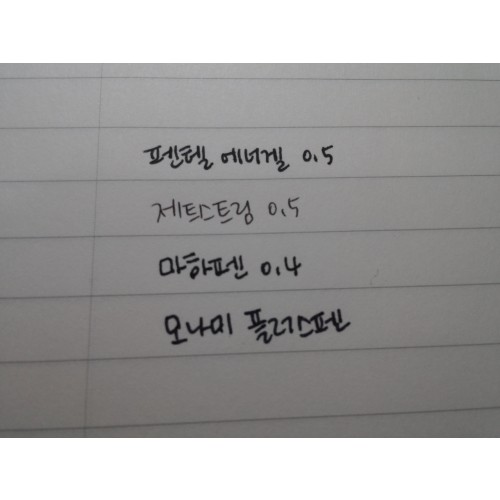 펜텔 에너겔 0.5
제트스트림 0.5
마하펜 0.4
모나미 플러스펜